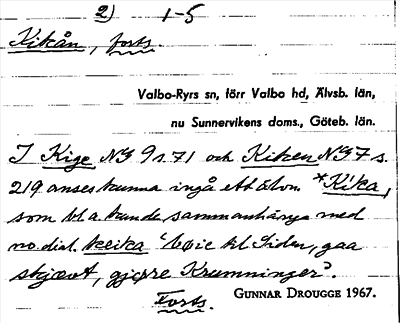 2) 1-5
Kikån, forts.
Valbo-Ryrs sn, förr Valbo hd, Älvsb. län,
nu Sunnervikens doms., Göteb. län.
I Kige NG 9 s. 71 och Kiken NG 7 s.
219 anses kunna ingå ett älvn. *Kíka,
som bl a kunde sammanhänga med
no. dial. keika 'bøie til Siden, gaa
skjævt, gjørre Krumninger'.
Forts.
GUNNAR DROUGGE 1967.